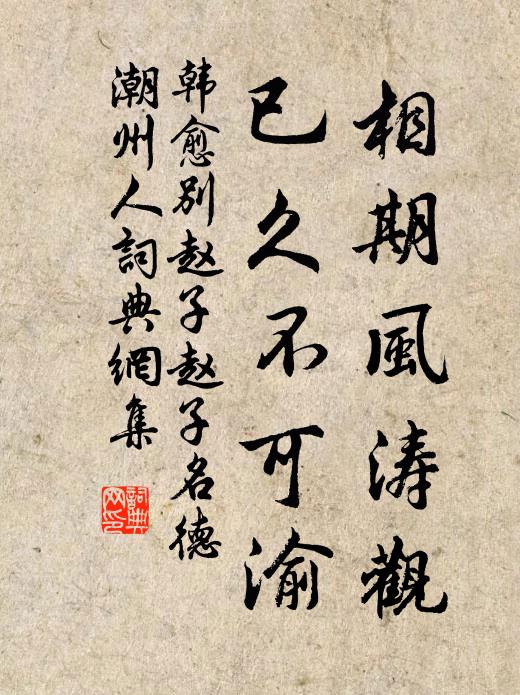 相期風涛觀
已久不可渝
韩愈别赵子赵子名德
潮州人詞典網集
詞典网印